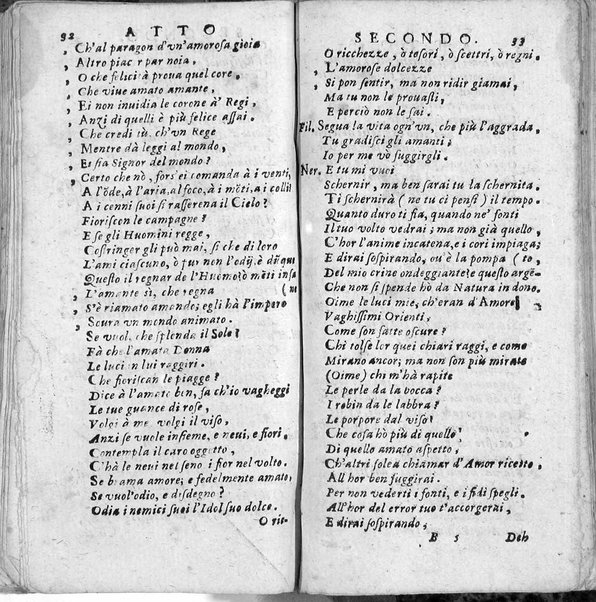 92 ATTO
, Ch'al paragon d'vn'amorosa gioia
, Altro piacer par noia,
, O che felici à proua quel core,
, Che viue amato amante,
, Ei non inuidia le corone à' Regi,
, Anzi di quelli è più felice assai.
, Che credi tù, ch'vn Rege
, Mentre dà leggi al mondo,
, Ei sia Signor del mondo?
, Certo che nò, fors'ei comanda à i venti,
A l'õde, à l'aria, al foco, à i mõti, a i colli?
A i cenni suoi si rasserena il Cielo?
Fioriscon le campagne?
E se gli Huomini regge,
Costringer gli può mai, sì che di loro
L'ami ciascuno, ò pur non l'odij, è dũq;
Questo il regnar de l'Huomo? ò mẽti insa
, L'amante sì, che regna (ne
, S'è riamato amando; egli hà l'impero
, Soura vn mondo animato.
Se vuol, che splenda il Sole?
Fà che l'amata Donna
Le luci in lui raggiri.
Che fioriscan le piagge?
Dice à l'amato ben, fa ch'io vagheggi
Le tue guance di rose,
Volgi à me, volgi il viso,
Anzi se vuole insieme, e neui, e fiori,
Contempla il caro oggetto,
C'hà le neui nel seno i fior nel volto.
Se brama amore, e fedelmente amato,
Se vuol'odio, e disdegno?
Odia i nemici suoi l'Idol suo dolce.
O ric-
SECONDO. 33
O ricchezze, ò tesori, ò scettri, ò regni.
, L'amorose dolcezze
, Si pon sentir, ma non ridir giamai,
Ma tu non le prouasti,
E perciò non le sai.
Fil. Segua la vita ogn'vn, che più l'aggrada,
Tu gradisci gli amanti;
Io per me vò fuggirgli.
Ner. E tu mi vuoi
Schernir, ma ben sarai tu la schernita.
Ti schernirà (ne tu ci pensi) il tempo.
Quanto duro ti fia, quando ne' fonti
Il tuo volto vedrai; ma non già quello,
C'hor l'anime incatena, e i cori impiaga;
E dirai sospirando, ou'è la pompa (to,
Del mio crine ondeggiante? e questo argẽ-
Che non si spende hò da Natura in dono.
Oime le luci mie, ch'eran d'Amore
Vaghissimi Orienti,
Come son fatte oscure?
Chi tolse lor quei chiari raggi, e come
Mirano ancor; ma non son più mirate
(Oime) chi m'hà rapite
Le perle da la bocca?
I rubin da le labbra?
Le porpore dal viso?
Che cosa hò più di quello,
Di quello amato aspetto,
Ch'altri solea chiamar d'Amor ricetto,
All'hor ben fuggirai.
Per non vederti i fonti, e i fidi spegli.
All'hor del error tuo t'accorgerai,
E dirai sospirando;
B 5 Deh